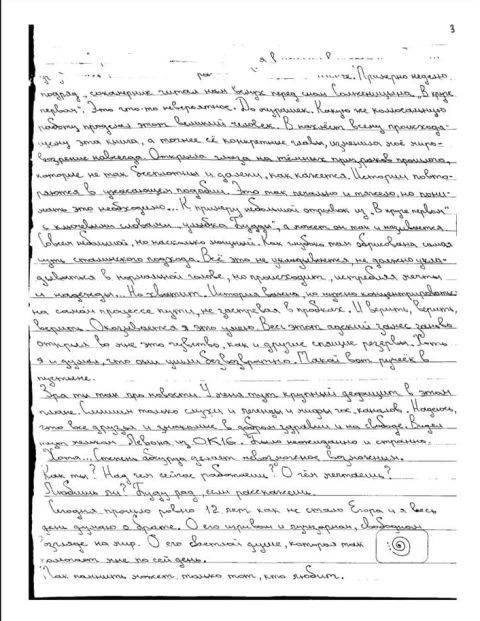 3
я в
Примерно неделю
подряд, сокамерник читал нам вслух перед сном Солженицына „В круге
первом". Это что-то невероятное. До мурашек. Какую же колоссальную
работу проделал этот великий человек. В нахлёст всему происходя-
щему эта книга, а точнее её конкретные главы, изменила моё миро-
воззрение навсегда. Открыла глаза на тёмных призраков прошлого,
которые не так бесплотны и далеки, как кажется. Истории повто-
ряются в ужасающем подобии. Это так печально и тяжело, но пони-
мать это необходимо... К примеру небольшой отрывок из „В круге первом"
с ключевыми словами „улыбка Будды", а может он так и называется
Совсем небольшой, но насколько мощный. Как глубоко там зарисована самая
суть сталинского подхода. Всё это не укладывается, не должно укла-
дываться в нормальной голове, но происходит, истребляя мечты
и надежды... Но хватит. История важна, но нужно концентрироваться
на самом процессе пути, не застревая в пробках. И верить, верить,
верить. Оказывается я это умею. Весь этот адский замес заново
открыл во мне это чувство, как и другие спящие резервы. Хоть
я и думал, что они ушли безвозвратно. Такой вот ручеёк в
пустыне.
Эра ты там про новости У меня тут крупный дефицит в этом
плане. Слышим только слухи и легенды и мифы гос. каналов. Надеюсь,
что все друзья и знакомые в добром здравии и на свободе. Видел
мельком Левона из ОК16. Было неожиданно и странно.
Хотя... Степень абсурда делает невозможное возможным.
Как ты? Над чем сейчас работаешь? О чём мечтаешь?
Любишь ли? Буду рад, если расскажешь.
Сегодня прошло ровно 12 лет как не стало Егора и я весь
день думаю о брате. О его игривом и свободном
взгляде на мир. О его светлой душе, которая так
помогает мне по сей день.
Так помнить может только тот, кто любит.